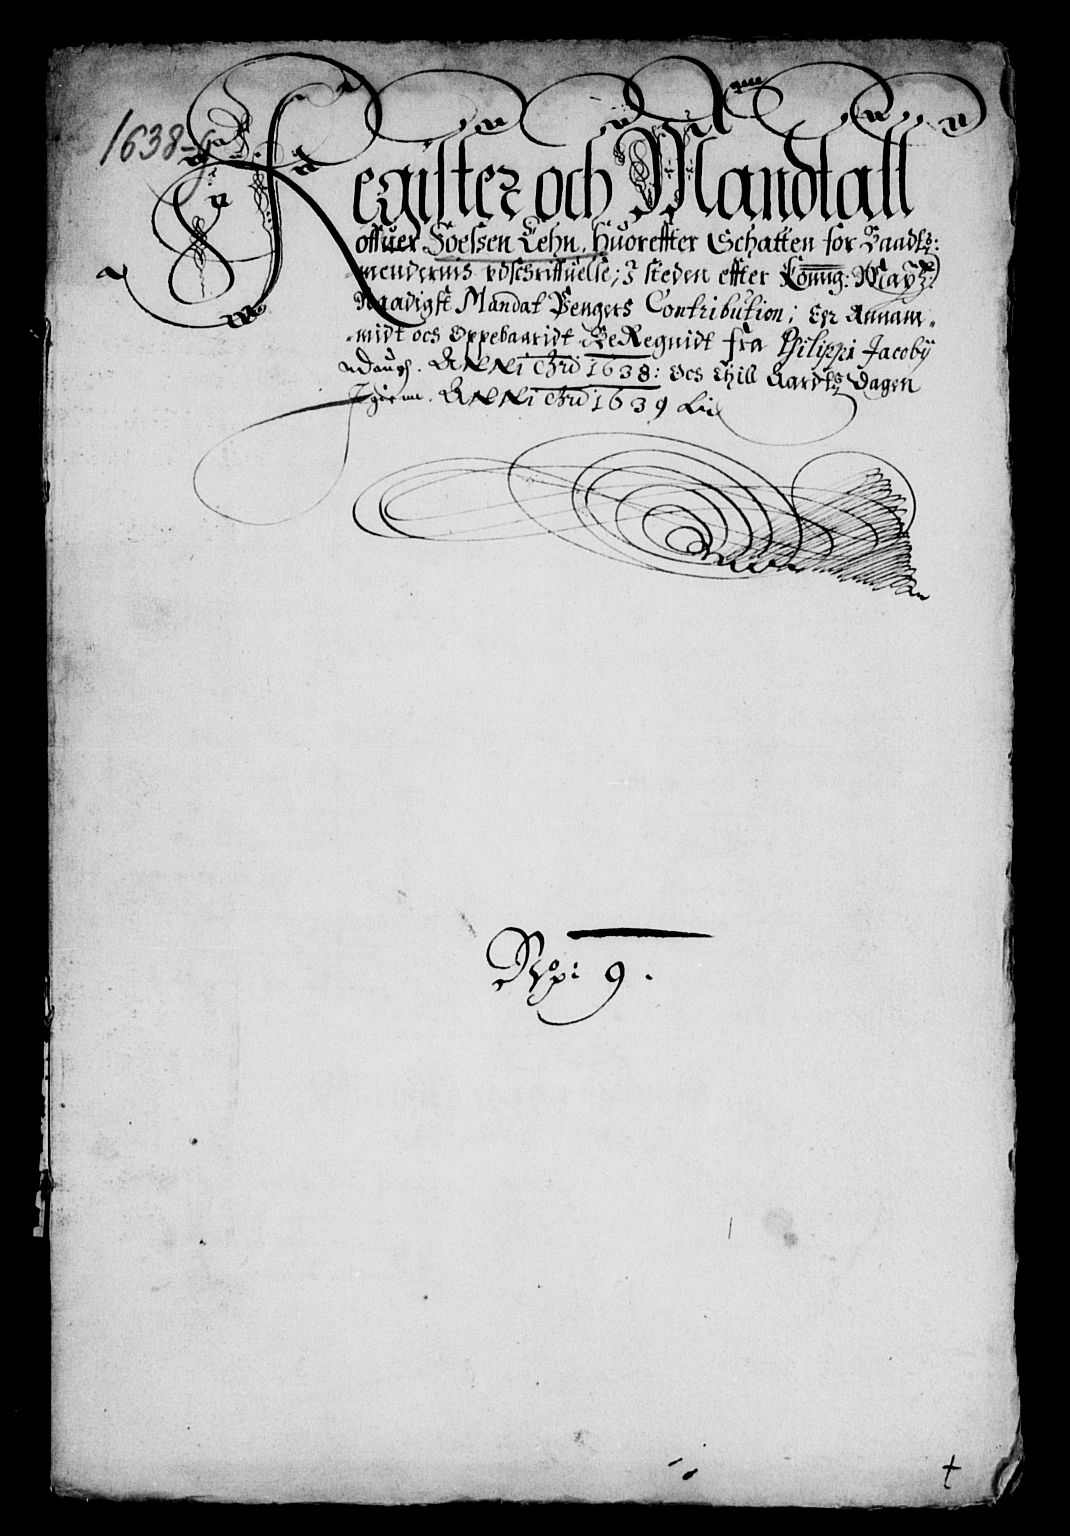 1638-
Register och Mandtall
offuer Foessen Lehn, Huoreffter Schatten for Baadtz:
mendernis vdschriffuelse; I steden effter Konng: Maytz
Naadigst Mandat Pengers Contribution; Er Annam-
-midt och Oppebaaridt BeRegnidt fra Philippi Jacoby
Dauch. ANNi Chri 1638: Och thill Aardtz Dagen
Igien. ANNi Chri 1639
9.